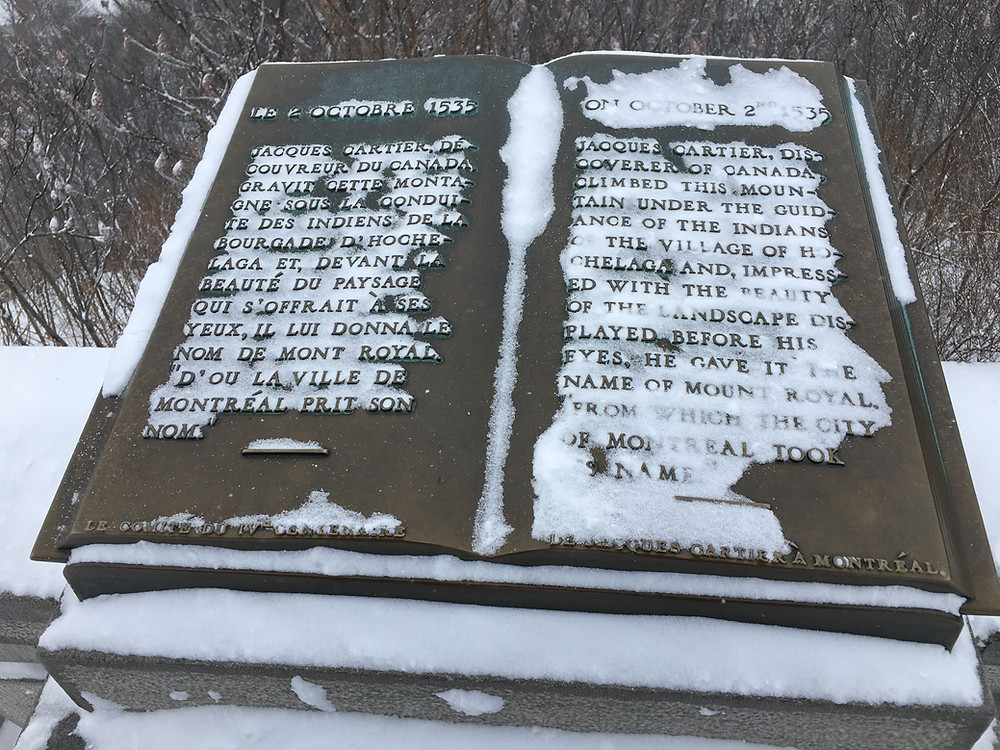 LE 2 OCTOBRE 1535
JACQUES CARTIER, DÉ-
COUVREUR DU CANADA
GRAVIT CETTE MONTA-
GNE SOUS LA CONDUI-
TE DES INDIENS DE LA
BOURGADE D'HOCHE-
LAGA ET, DEVANT LA
BEAUTÉ DU PAYSAGE
QUI S'OFFRAIT À SES
YEUX, IL LUI DONNA LE
NOM DE MONT ROYAL,
"D'OU LA VILLE DE
MONTRÉAL PRIT SON
NOM."
ON OCTOBER 2ND 1535
JACQUES CARTIER, DIS-
COVERER OF CANADA
CLIMBED THIS MOUN-
TAIN UNDER THE GUID-
ANCE OF THE INDIANS
OF THE VILLAGE OF HO-
CHELAGA AND, IMPRESS-
ED WITH THE BEAUTY
OF THE LANDSCAPE DIS-
PLAYED BEFORE HIS
EYES, HE GAVE IT THE
NAME OF MOUNT ROYAL,
"FROM WHICH THE CITY
OF MONTREAL TOOK
NAME
LE COMITÉ DU IVME CENTENAIRE
DE JACQUES CARTIER À MONTRÉAL.